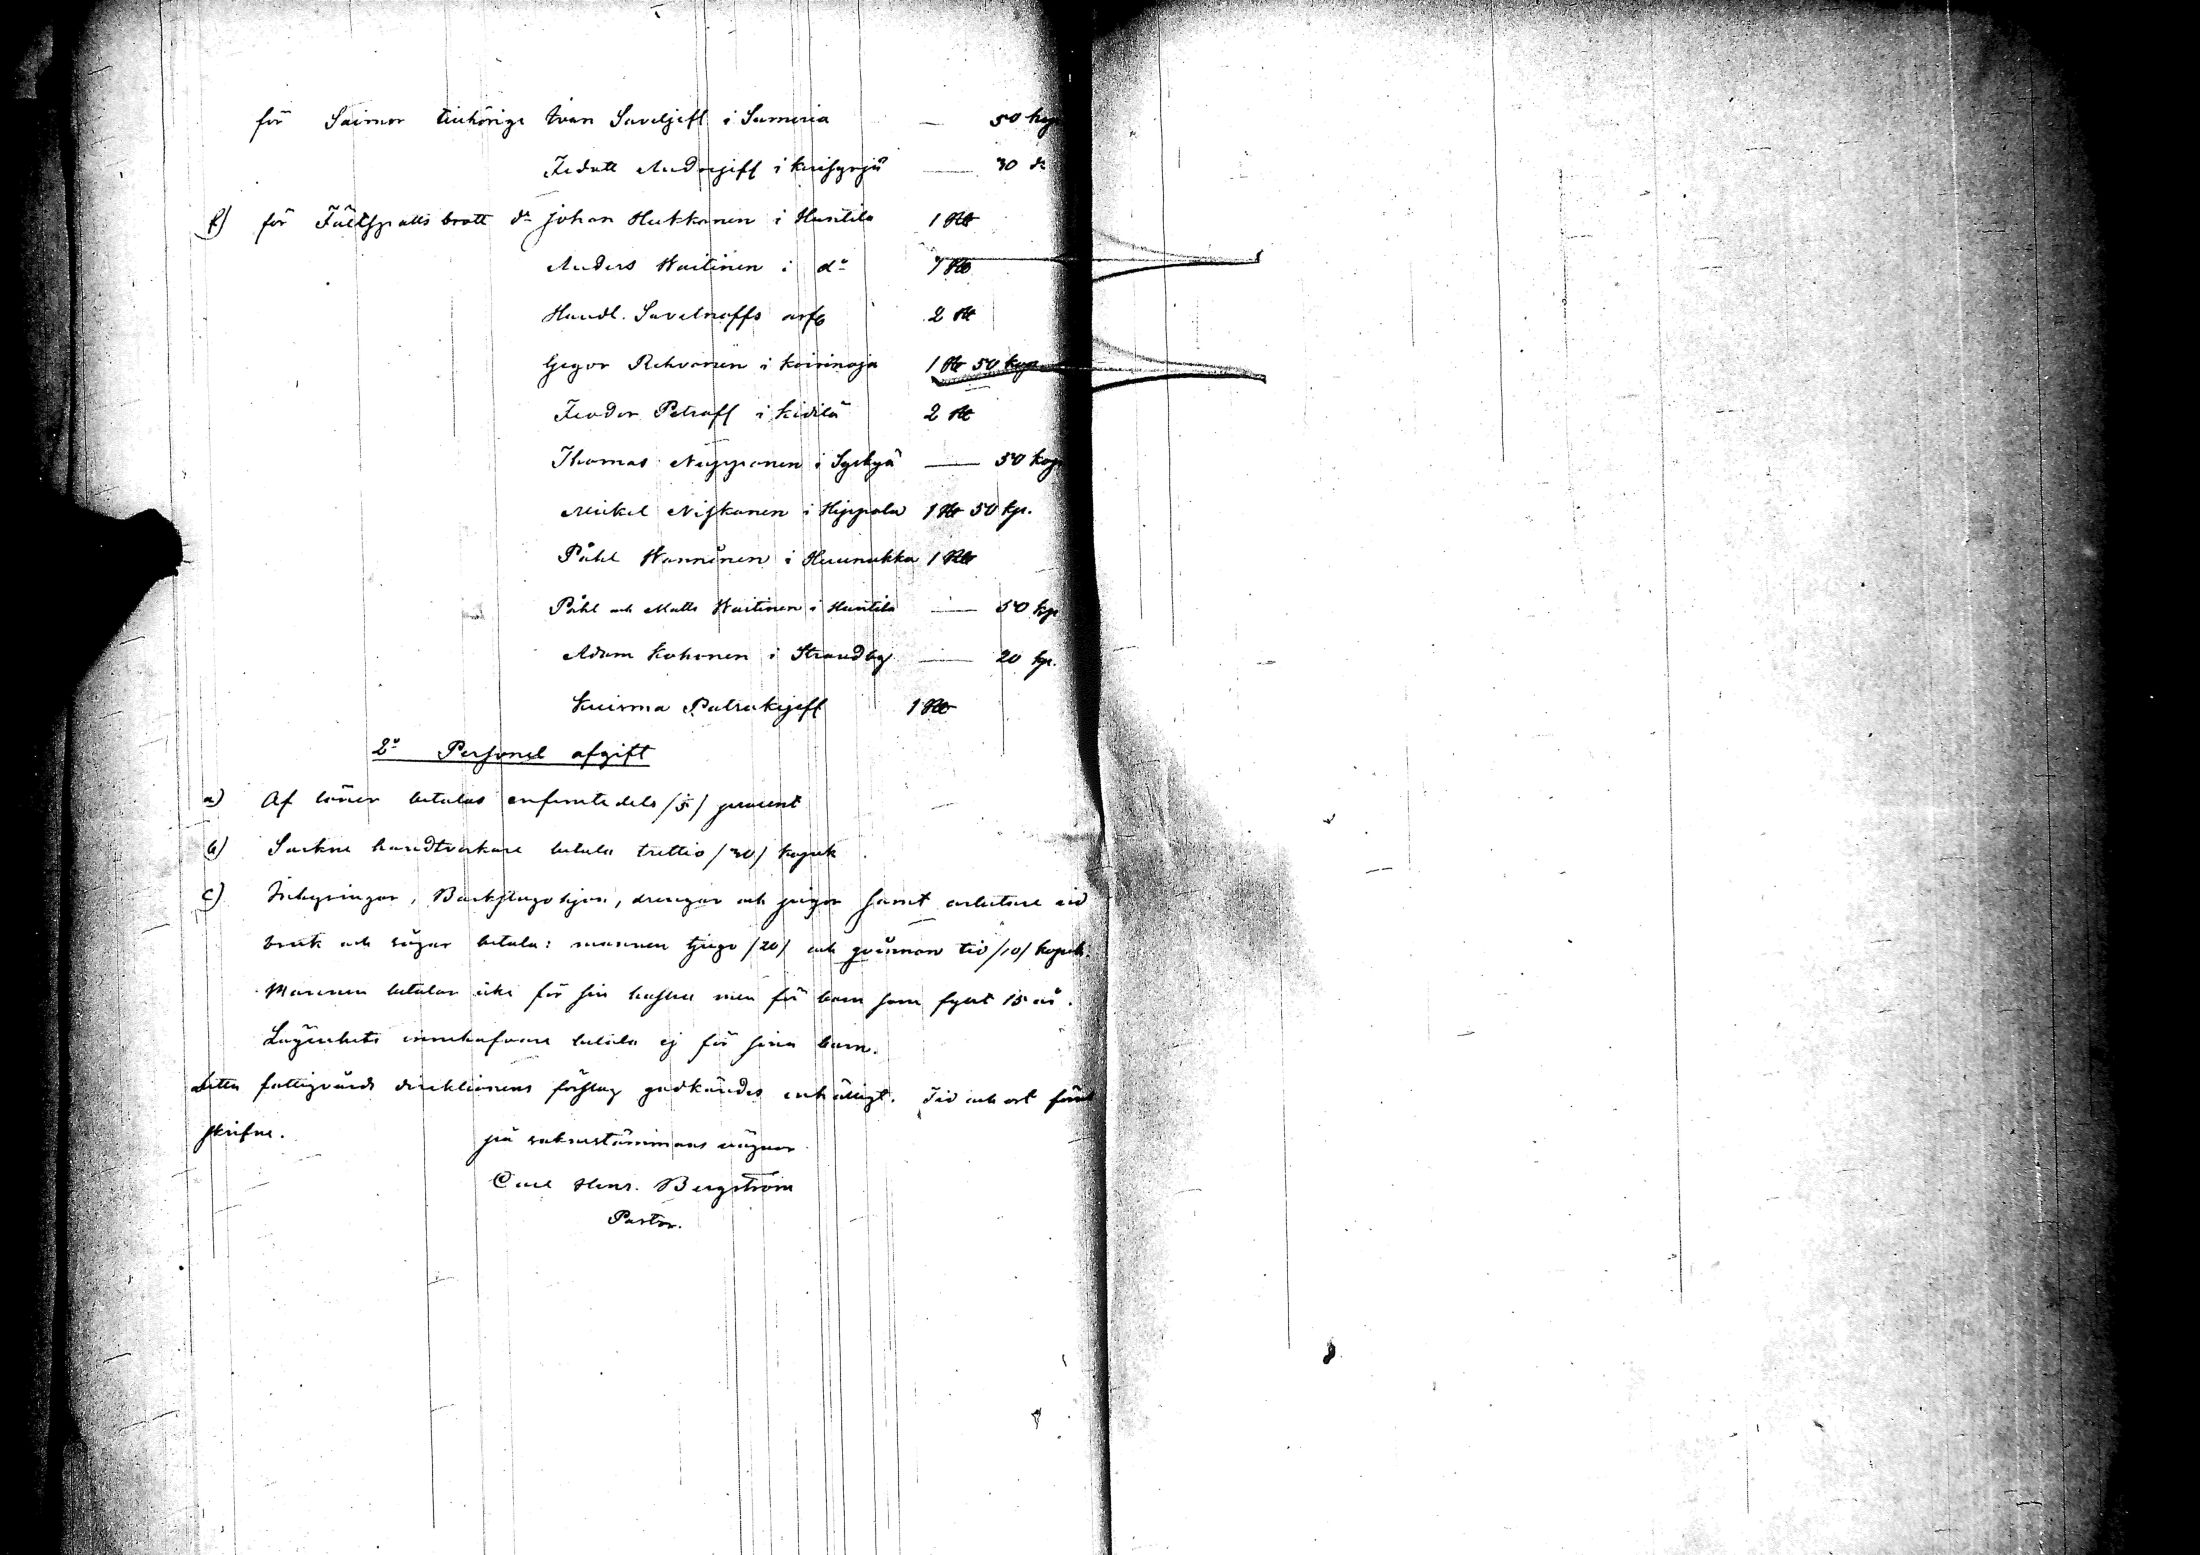 för Saimor tillhörige Ivan Saveljeff i Sumeria — 50 kop
Fedott Andrejeff i Kuisyrjä — 30 d:o
f) för Fältspatts brott d:o Johan Hukkanen i Huntila 1 Rb
Anders Waitinen i d:o 7 Rb
Handl. Savelnoffs arfv 2 Rb
Gegor Rehvonen i Koirinoja 1 Rb 50 kop
Feodor Petroff i Kidilä 2 Rb
Thomas Nupponen i Syskyä — 50 kop
Mickel Niskanen i Hippola 1 Rb 50 kp.
Påhl Wänninen i Huunukka 1 Rb
Påhl och Matts Waitinen i Huntila — 50 kp
Adam Kohonen i Strandby — 20 kp.
Kuisma Patrakejeff 1 Rb
2:o Personel afgift
a) Af löner betalas en femtedels /⅕/ procent
b) Sockne handtverkare betala trettio /30/ kopek
c) Inhysingar, Backstugohjon, drengar och pigor samt arbetare vid
bruk och sågar betala: mannen tjugo /20/ och qvinnan tio /10/ kopek.
Mannen betalar icke för sin hustru men för barn som fyllt 15 år.
Lägenhets innehafvare betala ej för sina barn.
Detta fattigvårds direktionens förslag godkändes enhälligt. Tid och ort förut
skrifne.
på sockenstämmans vägnar
Carl Henr. Bergström
Pastor.